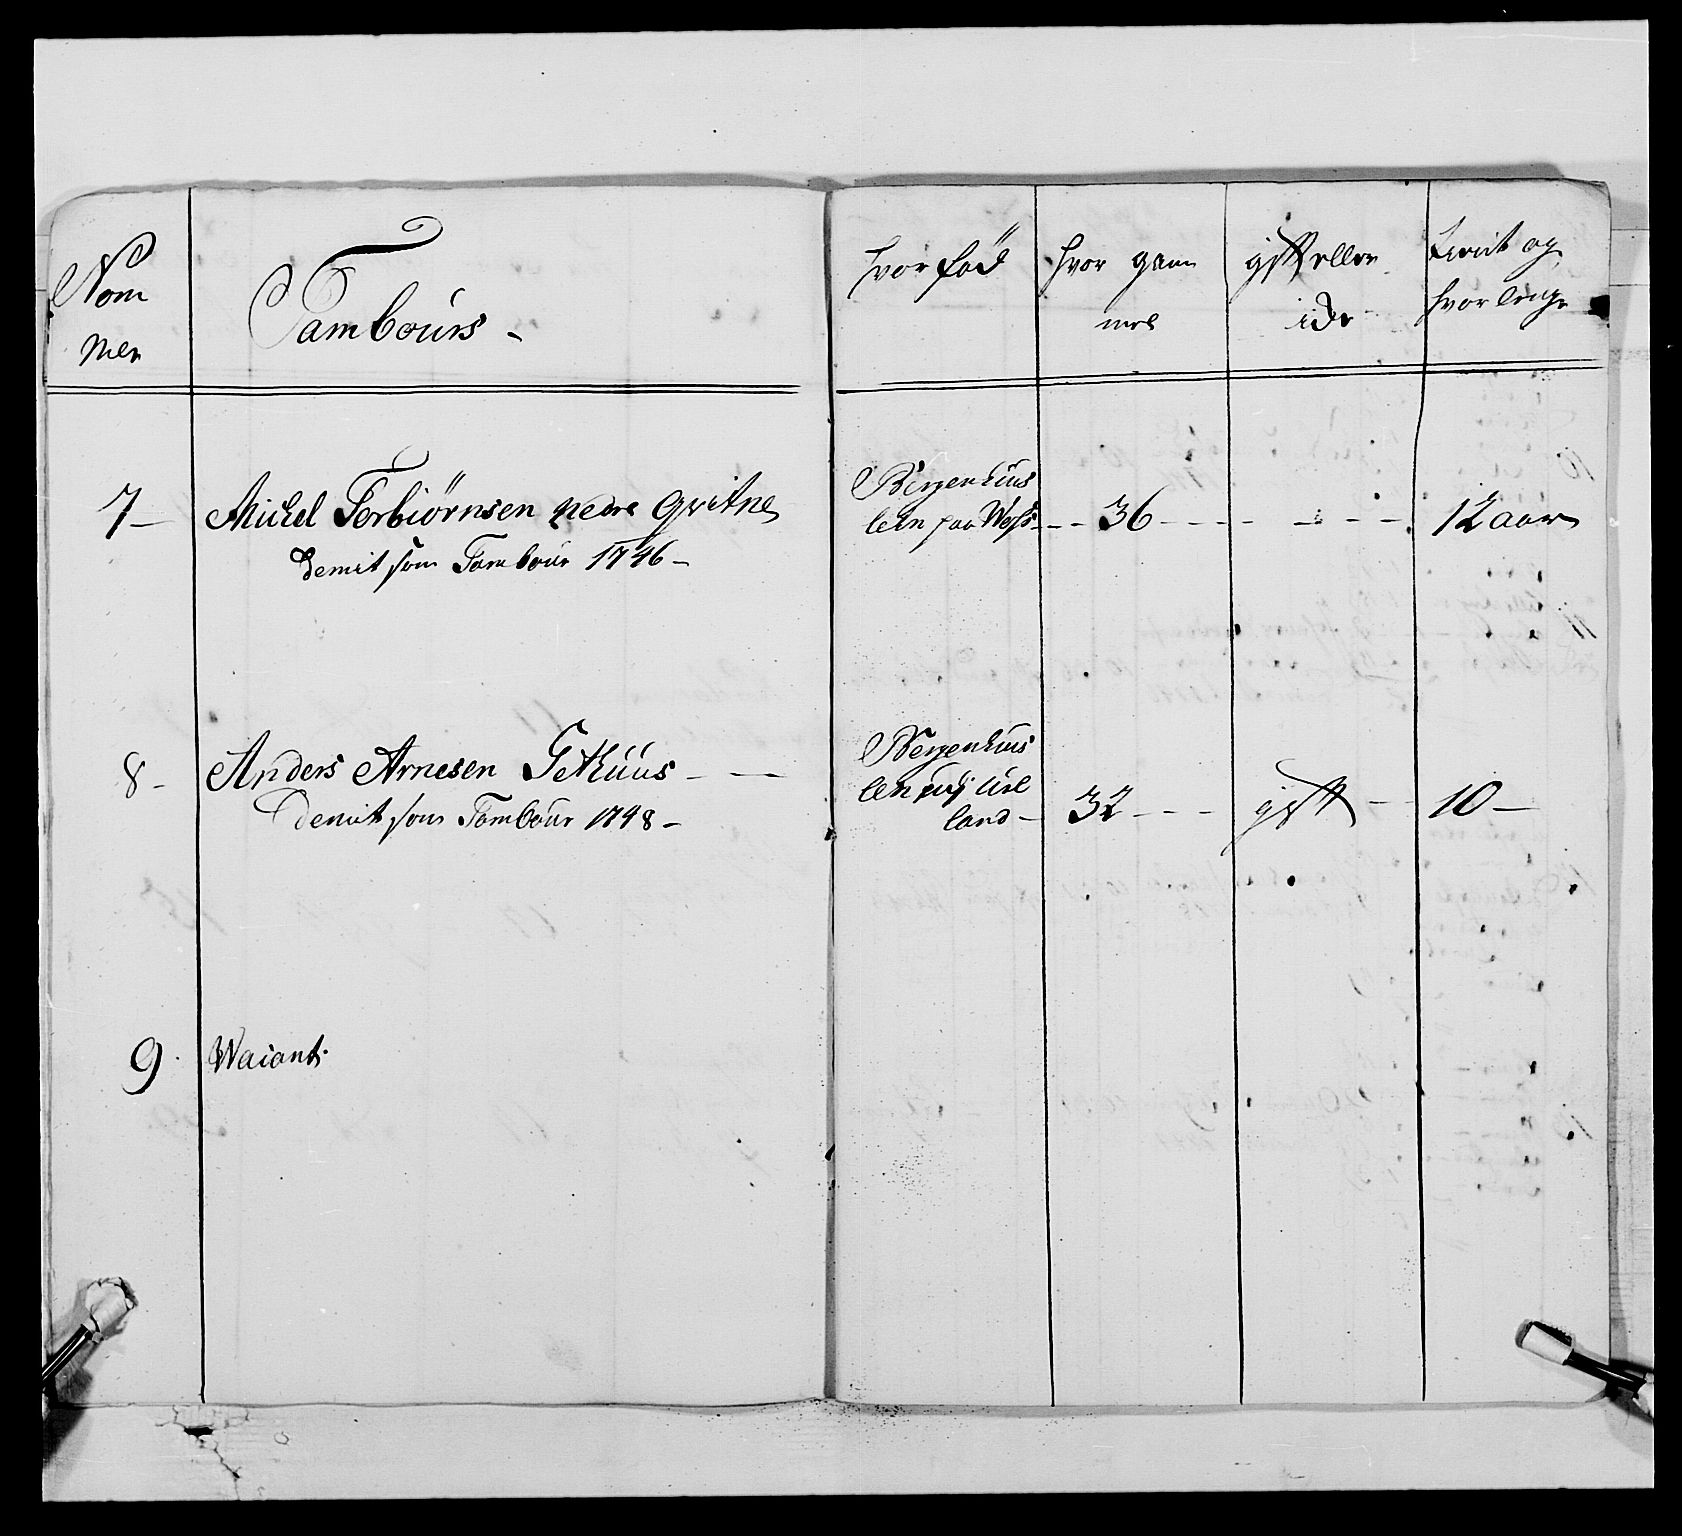 Nom
mer
Tambours -
hvor fød
hvor gam
mel
gift eller
ide
tient og
hvor lenge
7 -
Michel Torbiørnsen nedre Qvitne
demit som Tambour 1746 -
Bergenhuus
lehn paa Woss - - 36 - - - - - - - 12 aar
8 -
Anders Arnesen Gethuus - - -
Demit som Tambour 1748 -
Bergenhuus
lehn
land - 32 - - - gift - 10 -
9. Wacant